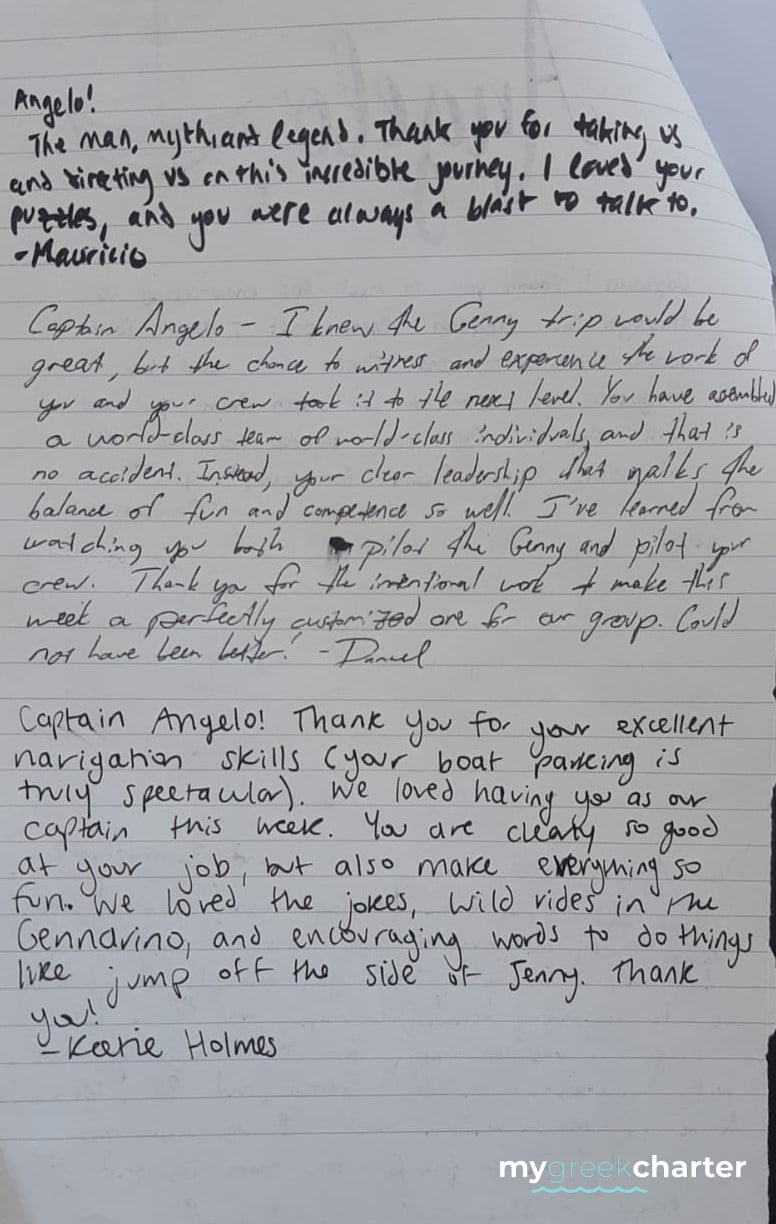 Angelo!
The man, myth, and legend. Thank you for taking us
and directing us on this incredible journey. I loved your
puzzles, and you were always a blast to talk to.
- Mauricio
Captain Angelo - I knew the Genny trip would be
great, but the chance to witness and experience the work of
you and your crew took it to the next level. You have assembled
a world-class team of world-class individuals, and that is
no accident. Instead, your clear leadership that walks the
balance of fun and competence so well. I've learned from
watching you both pilot the Genny and pilot your
crew. Thank you for the intentional work to make this
week a perfectly customized one for our group. Could
not have been better! - Daniel
Captain Angelo! Thank you for your excellent
navigation skills (your boat parking is
truly spectacular). We loved having you as our
captain this week. You are clearly so good
at your job, but also make everything so
fun. We loved the jokes, wild rides in the
Gennarino, and encouraging words to do things
like jump off the side of Jenny. Thank
you!
- Holmes
mygreekcharter